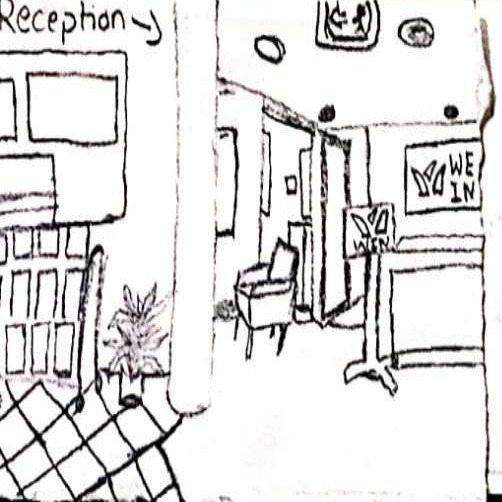 Reception
WE
IN
WEIN